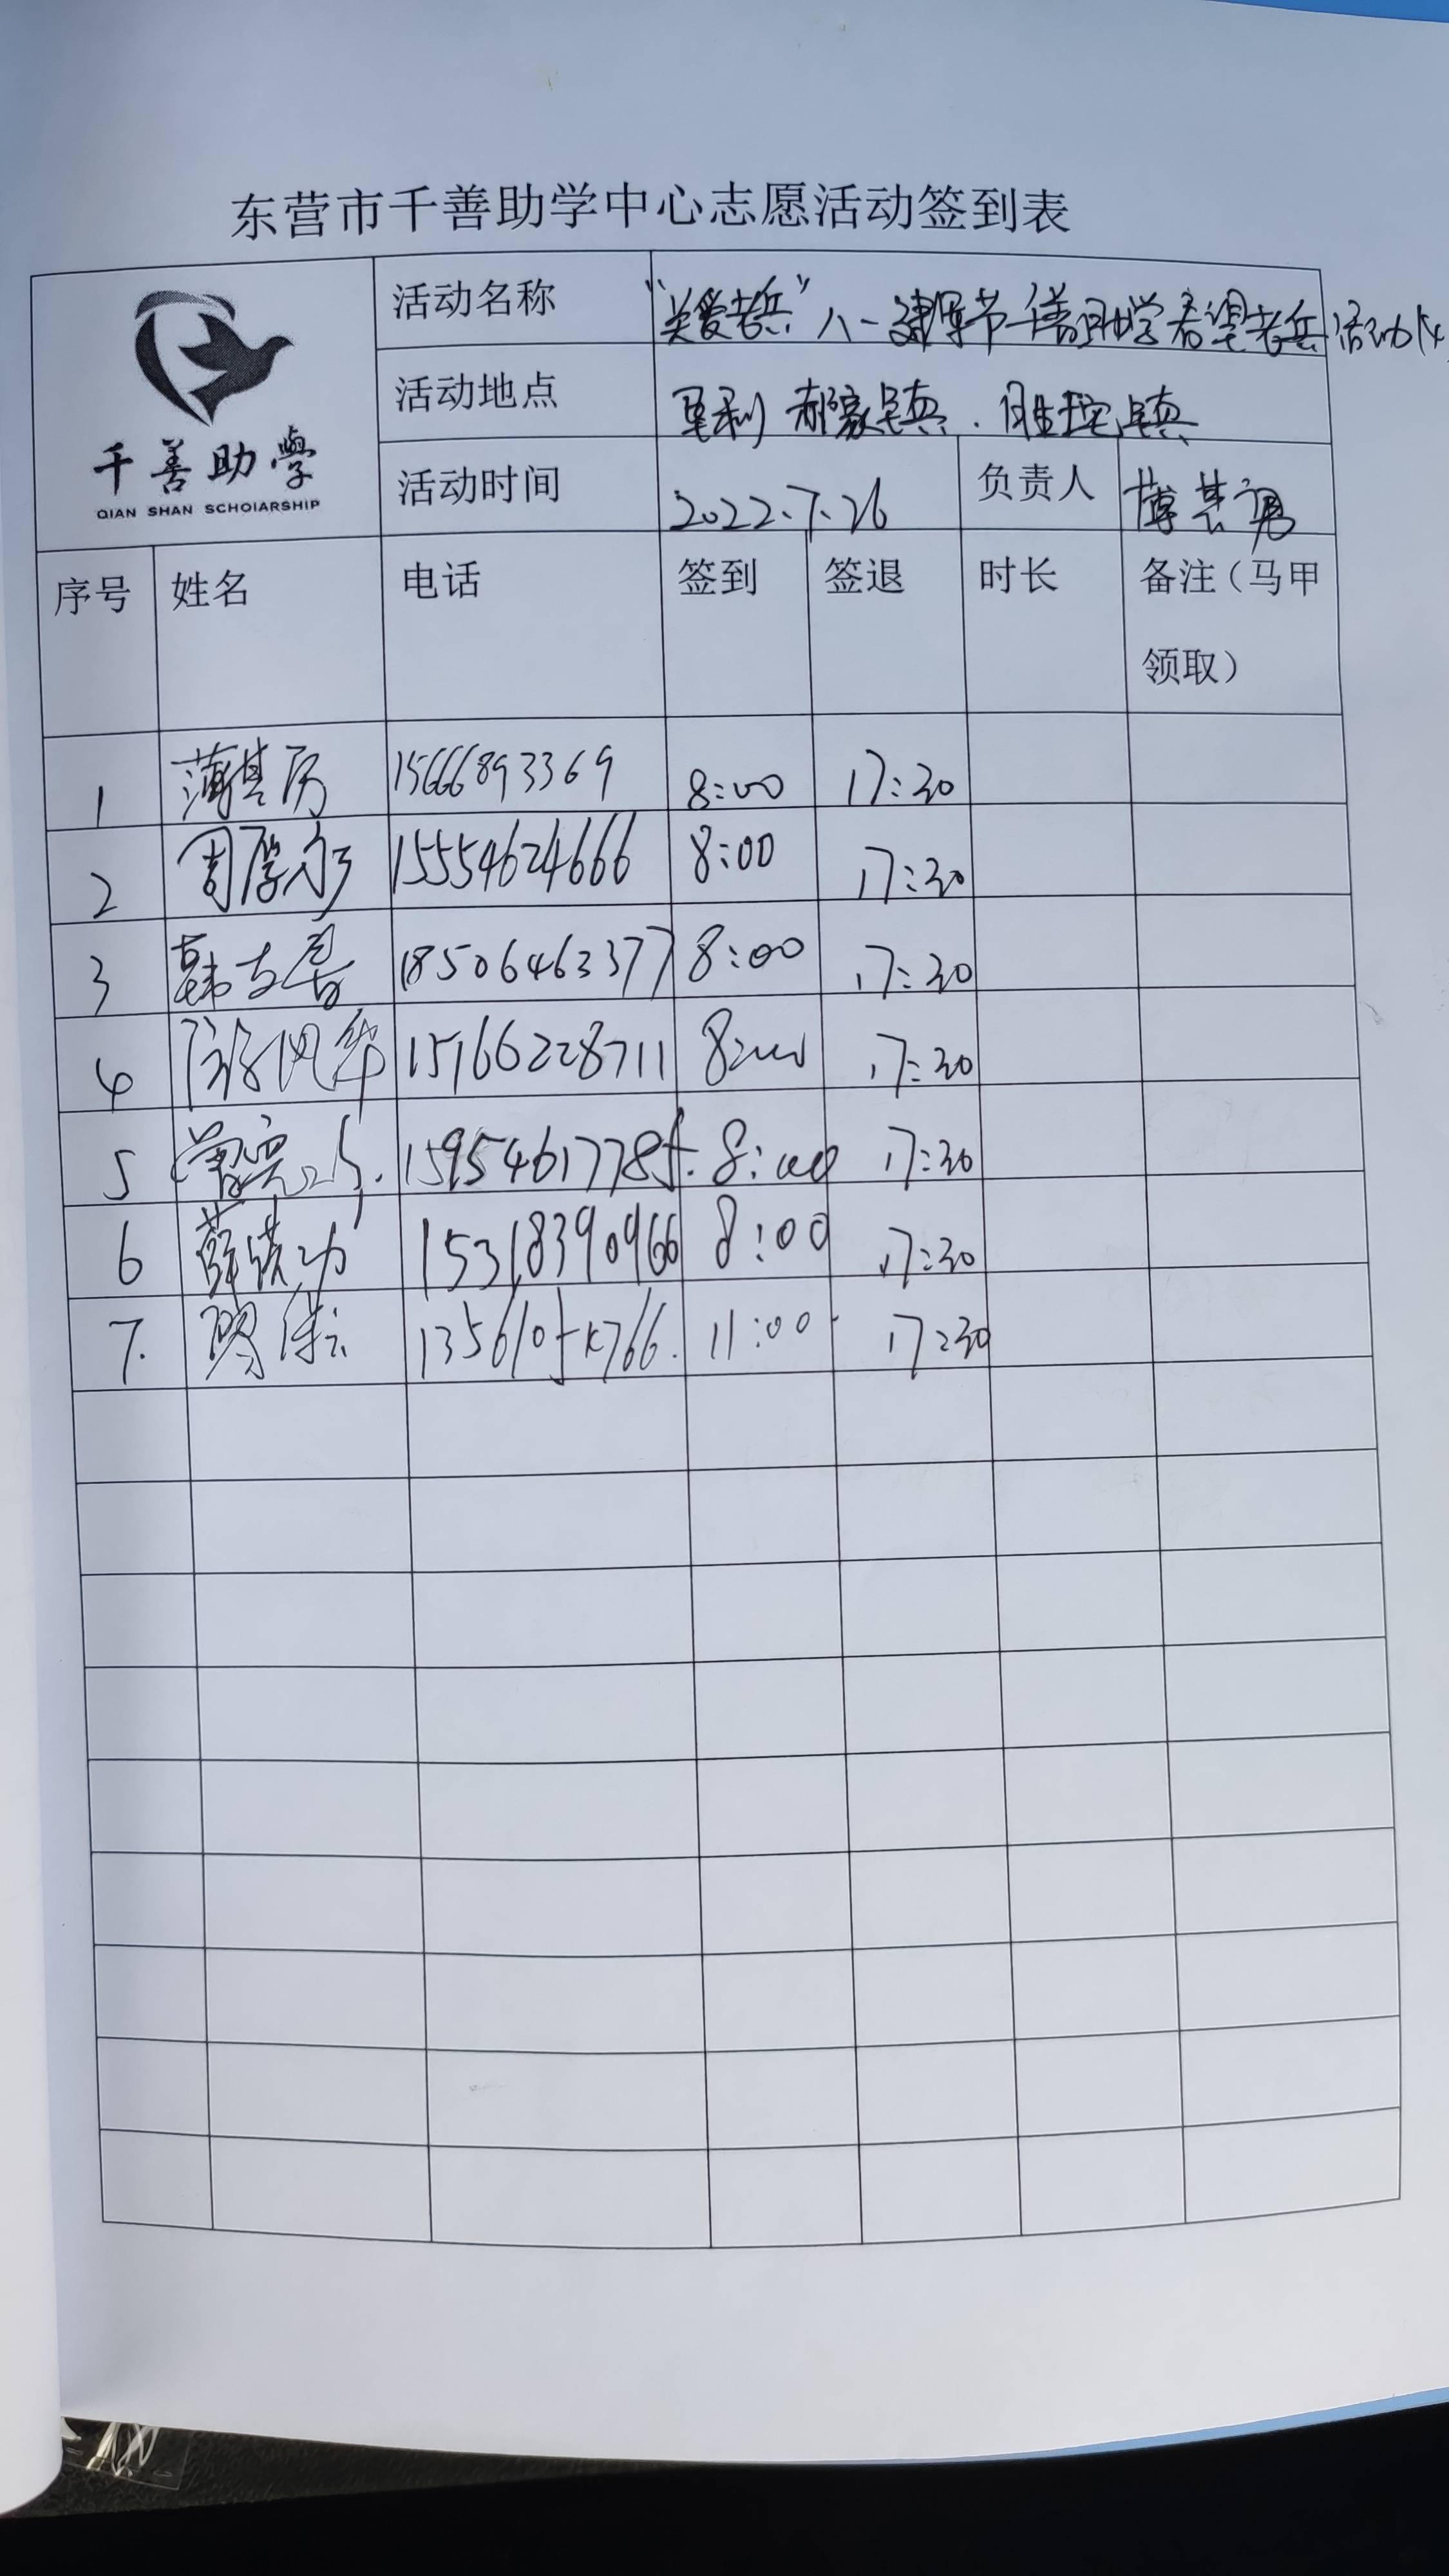 东营市千善助学中心志愿活动签到表
千善助學
QIAN SHAN SCHOlARSHIP
活动名称 "关爱老兵"八一建军节千善助学看望老兵活动
活动地点 垦利 郝家镇.胜坨镇
活动时间 2022.7.26 负责人 薄其
序号 姓名 电话 签到 签退 时长 备注(马甲
领取)
1 15666893369 8:00 17:30
2 周厚 15554624666 8:00 17:30
3 韩 18506463377 8:00 17:30
4 风华 15166228711 8:00 17:30
5 曾 15954617785. 8:00 17:30
6 薛 功 15318390966 8:00 17:30
7. 11:00 17:30